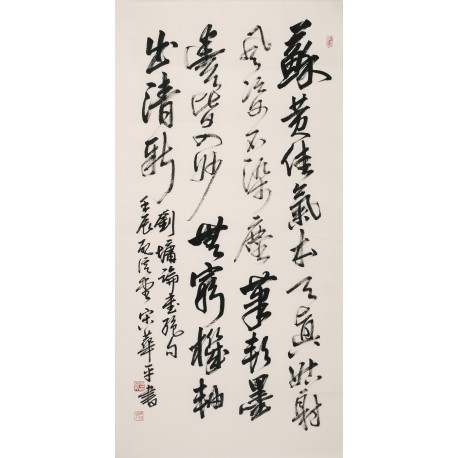 蘇黄佳氣本天真姑射
風姿不染塵筆軟墨
豐皆入妙無窮機軸
出清新
劉墉論書絶句
壬辰 堂宋華平書